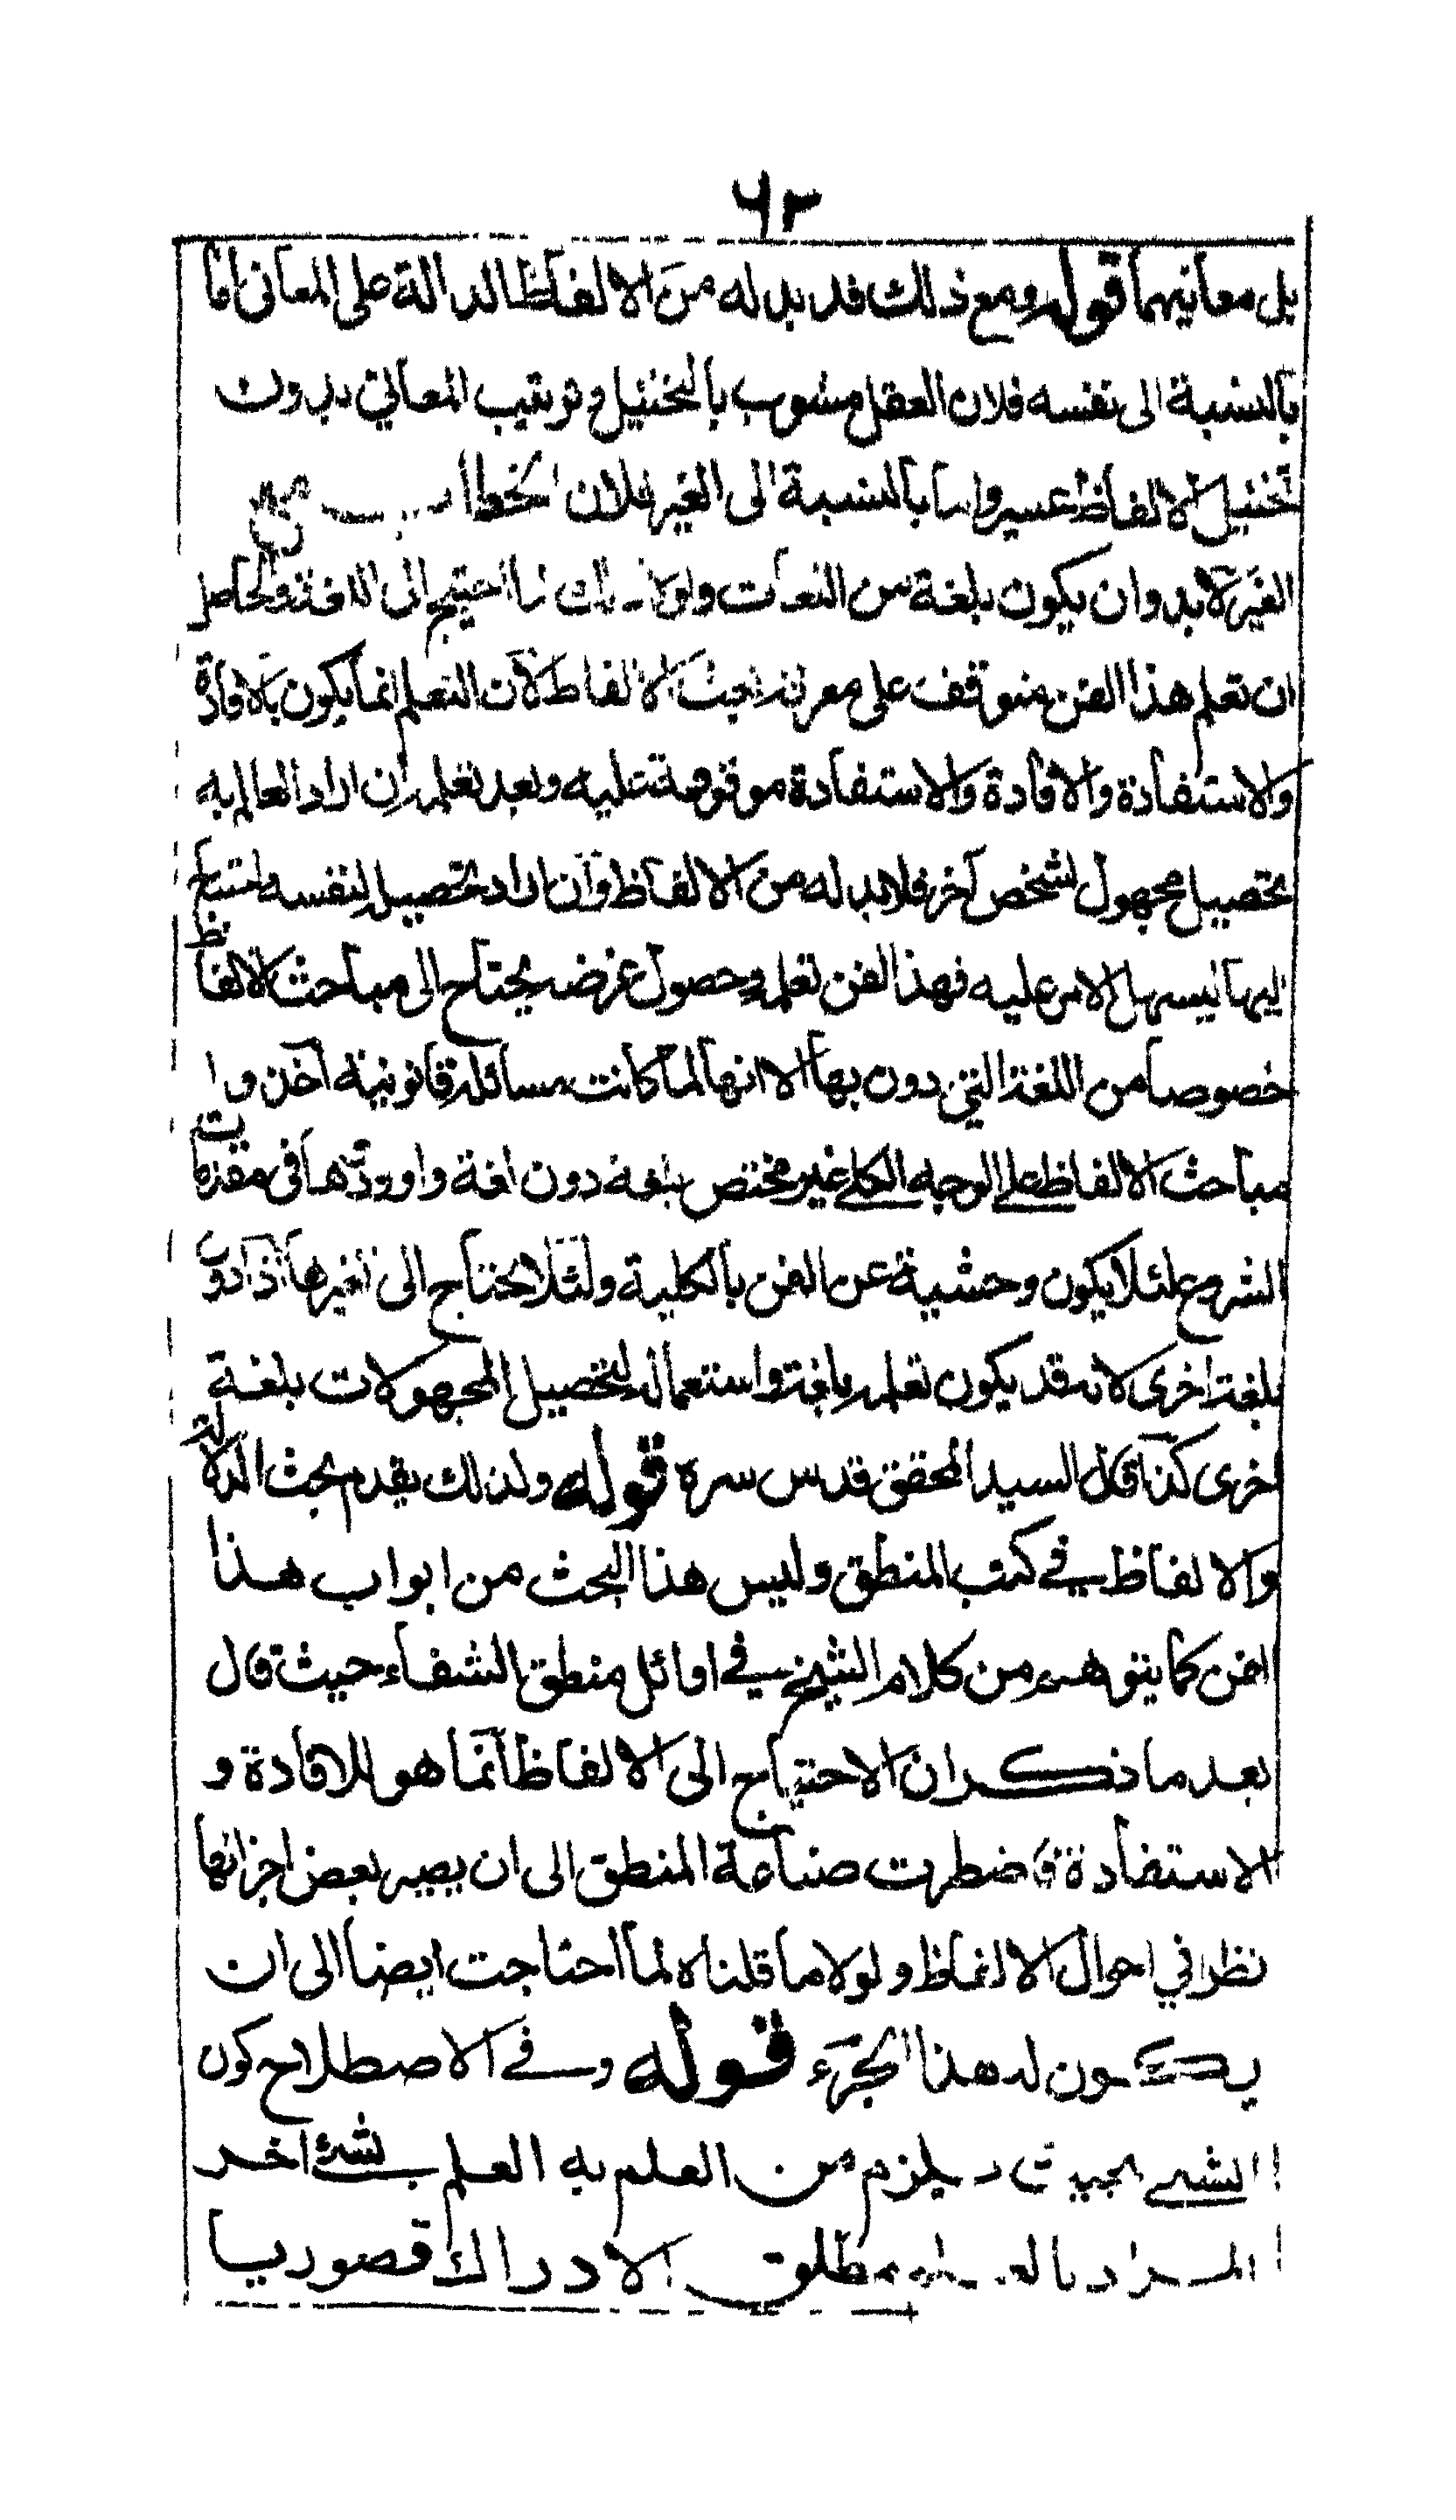 ٦٢
بل معانيهما قوله ومع ذلك فلا بد له من الالفاظ الدالة على المعانى اما
بالنسبة الى نفسه فلان العقل مشوب بالتخئيل وترتيب المعاني بدون
تخئيل الالفاظ عسير واما بالنسبة الى الغير فلان الخطاب مع
الغير لابد وان يكون بلغة من اللغات ولولا ذلك لما احتيج الى اللغة والحاصل
ان تعلم هذا الفن متوقف على معرفة بحث الالفاظ لان التعلم انما يكون بالافادة
والاستفادة والافادة والاستفادة موقوفة عليه وبعد تعلمه ان اراد العالم به
تحصيل مجهول لشخص آخر فلا بد له من الالفاظ وان اراد تحصيله لنفسه احتاج
اليها ليسهل الامر عليه فهذا الفن تعلمه وحصول غرضه يحتاج الى مباحث الالفاظ
خصوصا من اللغة التى دون بها الا انها لما كانت مسائله قانونية اخذوا
مباحث الالفاظ على الوجه الكلى غير مختص بلغة دون لغة واوردها فى مقدمات
الشروع لئلا يكون وحشية عن الفن بالكلية ولئلا يحتاج الى تغيرها اذا دون
بلغة اخرى لانه قد يكون تعلمه بلغة واستعماله لتحصيل المجهولات بلغة
اخرى كذا قال السيد المحقق قدس سره قوله ولذلك يقدم بحث الدلالة
والالفاظ في كتب المنطق وليس هذا البحث من ابواب هذا
الفن كما يتوهم من كلام الشيخ في اوائل منطق الشفاء حيث قال
بعد ما ذكر ان الاحتياج الى الالفاظ انما هو للافادة و
الاستفادة فاضطرت صناعة المنطق الى ان يصير بعض اجزائها
نظرا في احوال الالفاظ ولولا ما قلناه لما احتاجت ايضا الى ان
يكون له هذا الجزء قوله وفي الاصطلاح كون
الشىء بحيث يلزم من العلم به العلم بشىء اخر
المراد بالعلم مطلق الادراك تصوريا